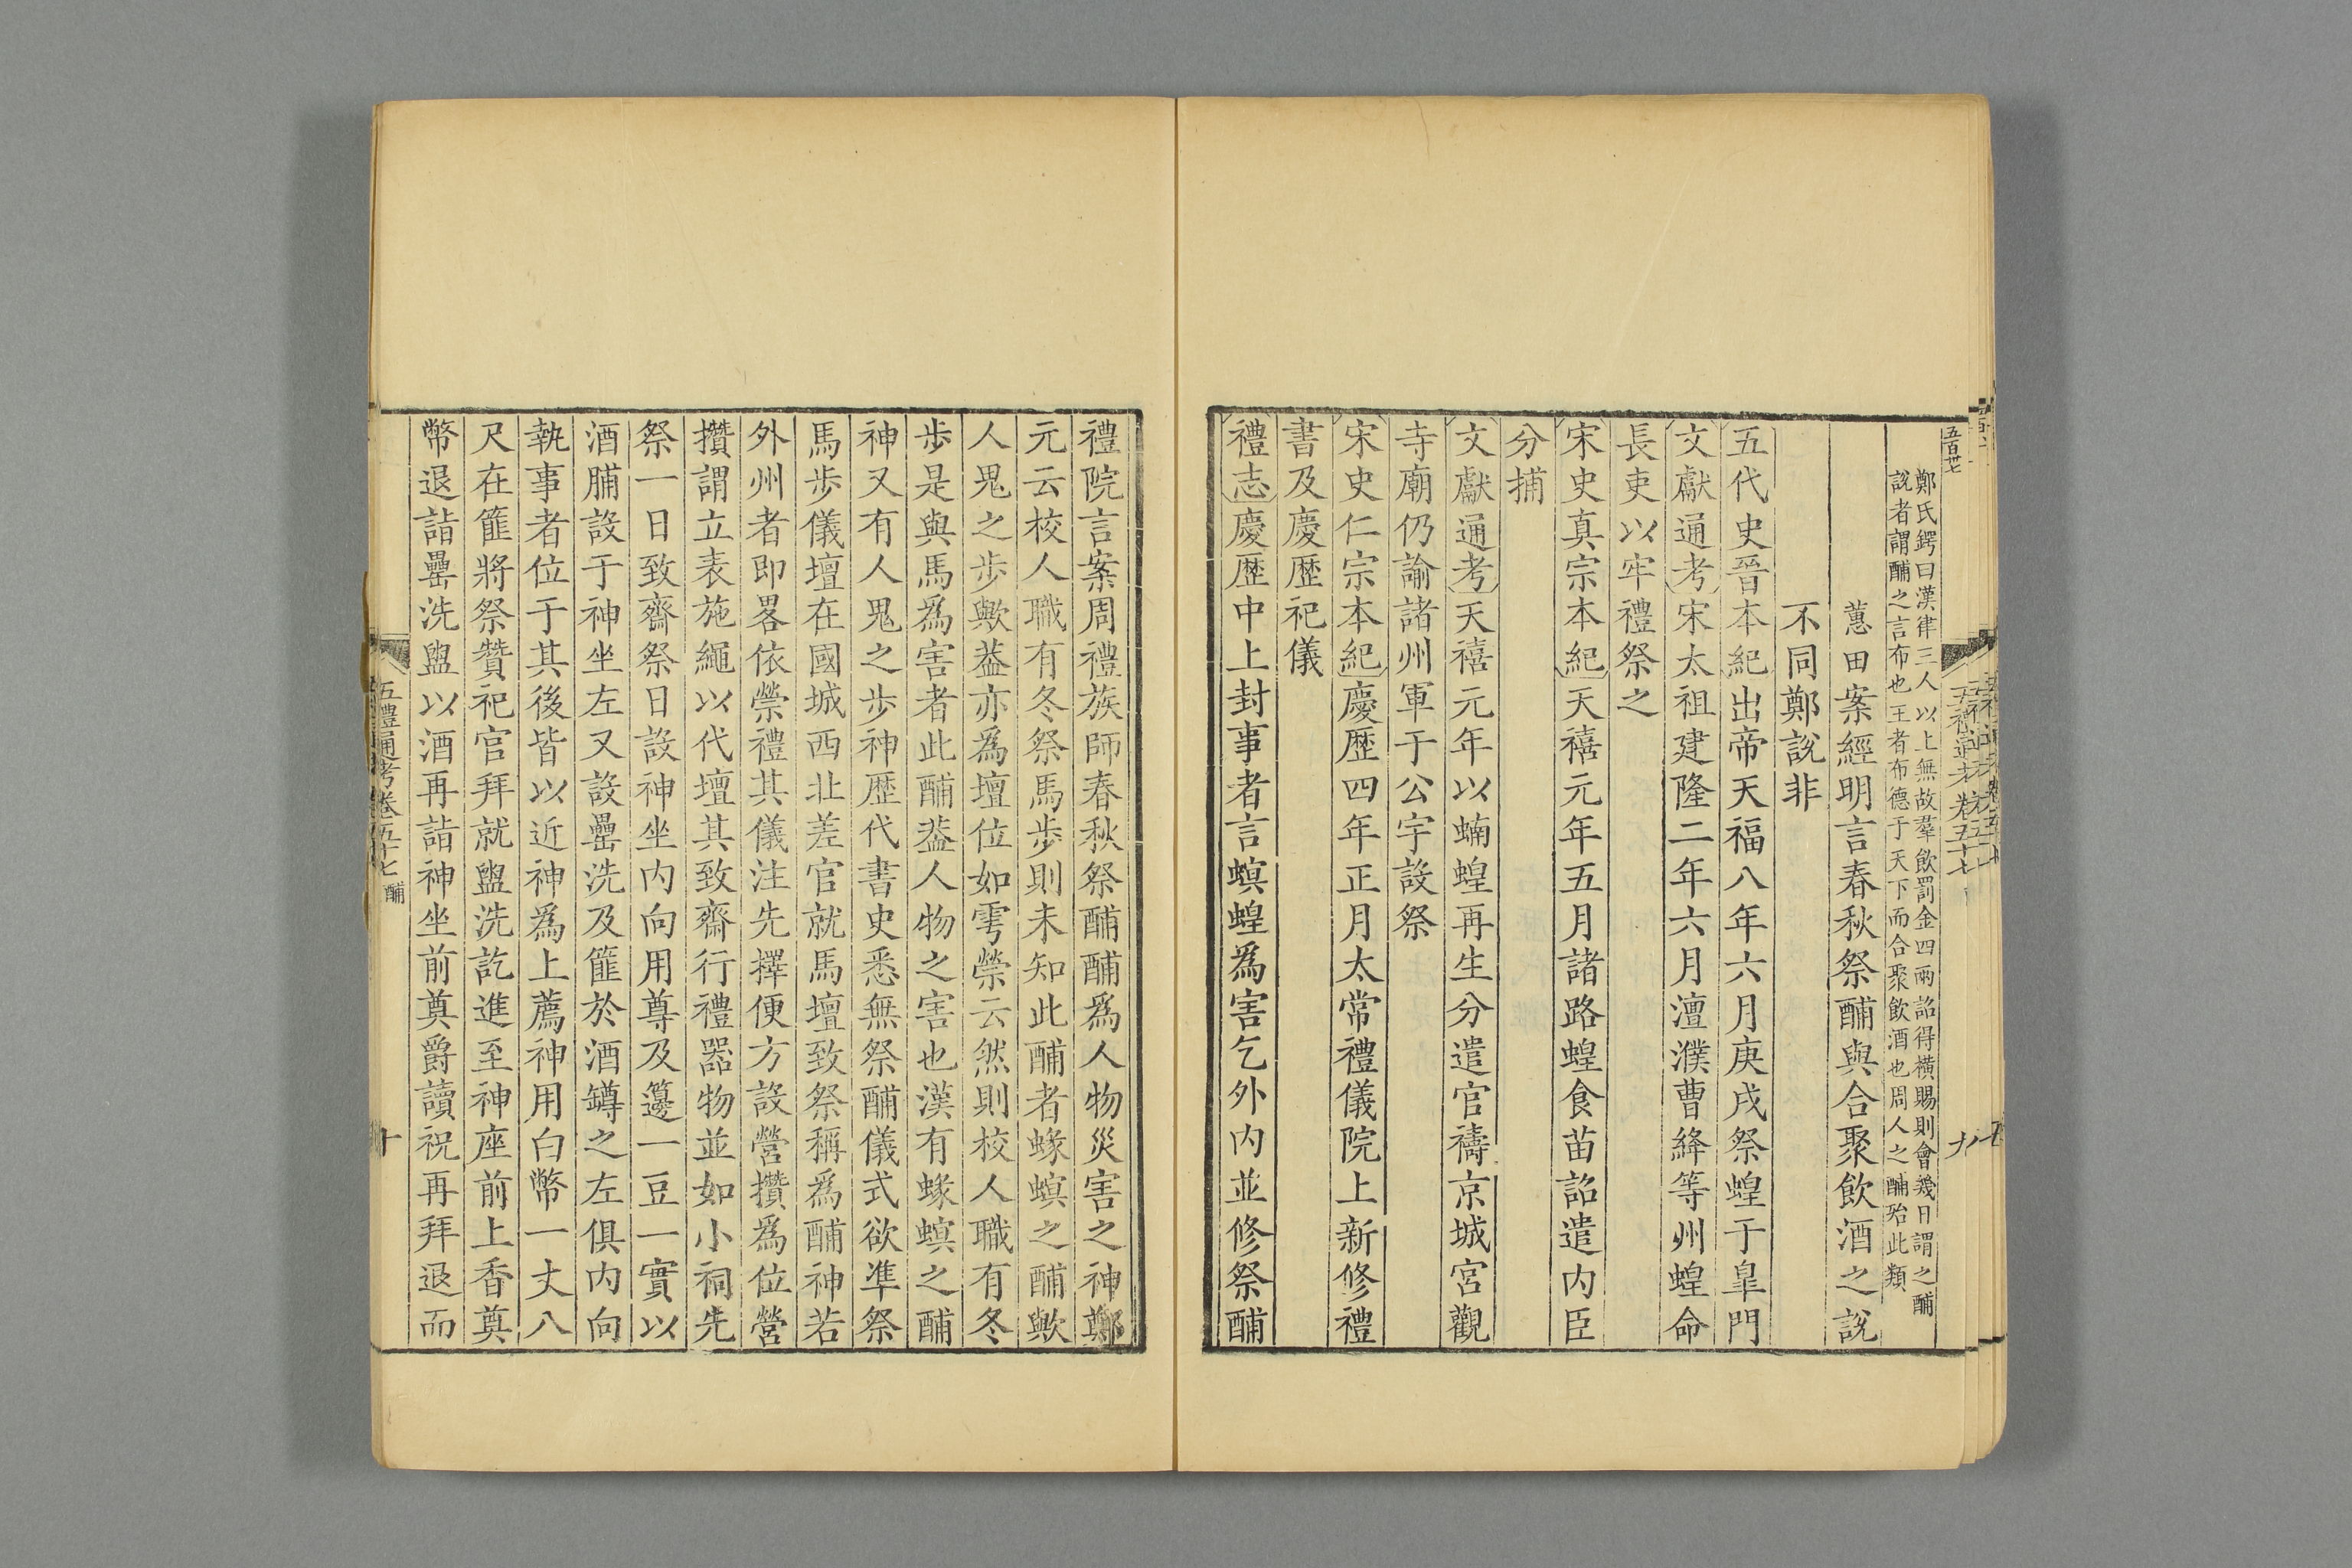 鄭氏鍔曰漢律三人以上無故羣飲罰金四兩詔得橫賜則會幾日謂之酺
說者謂酺之言布也王者布德于天下而合聚飲酒也周人之酺殆此類
蕙田案經明言春秋祭酺與合聚飲酒之說
不同鄭說非
五代史晉本紀出帝天福八年六月庚戌祭蝗于皐門
文獻通考宋太祖建隆二年六月澶濮曹絳等州蝗命
長吏以牢禮祭之
宋史真宗本紀天禧元年五月諸路蝗食苗詔遣内臣
分捕
文獻通考天禧元年以蝻蝗再生分遣官禱京城宮觀
寺廟仍諭諸州軍于公宇設祭
宋史仁宗本紀慶歷四年正月太常禮儀院上新修禮
書及慶歷祀儀
禮志慶歷中上封事者言螟蝗爲害乞外内並修祭酺
禮院言案周禮族師春秋祭酺酺爲人物災害之神鄭
元云校人職有冬祭馬步則未知此酺者蝝螟之酺歟
人鬼之步歟葢亦爲壇位如雩禜云然則校人職有冬
步是與馬爲害者此酺葢人物之害也漢有蝝螟之酺
神又有人鬼之步神歷代書史悉無祭酺儀式欲準祭
馬步儀壇在國城西北差官就馬壇致祭稱爲酺神若
外州者即畧依禜禮其儀注先擇便方設營攢爲位營
攢謂立表施繩以代壇其致齋行禮器物並如小祠先
祭一日致齋祭日設神坐内向用尊及籩一豆一實以
酒脯設于神坐左又設罍洗及篚於酒罇之左俱内向
執事者位于其後皆以近神爲上薦神用白幣一丈八
尺在篚將祭贊祀官拜就盥洗訖進至神座前上香奠
幣退詣罍洗盥以酒再詣神坐前奠爵讀祝再拜退而
五禮通考卷五十七 酺
十